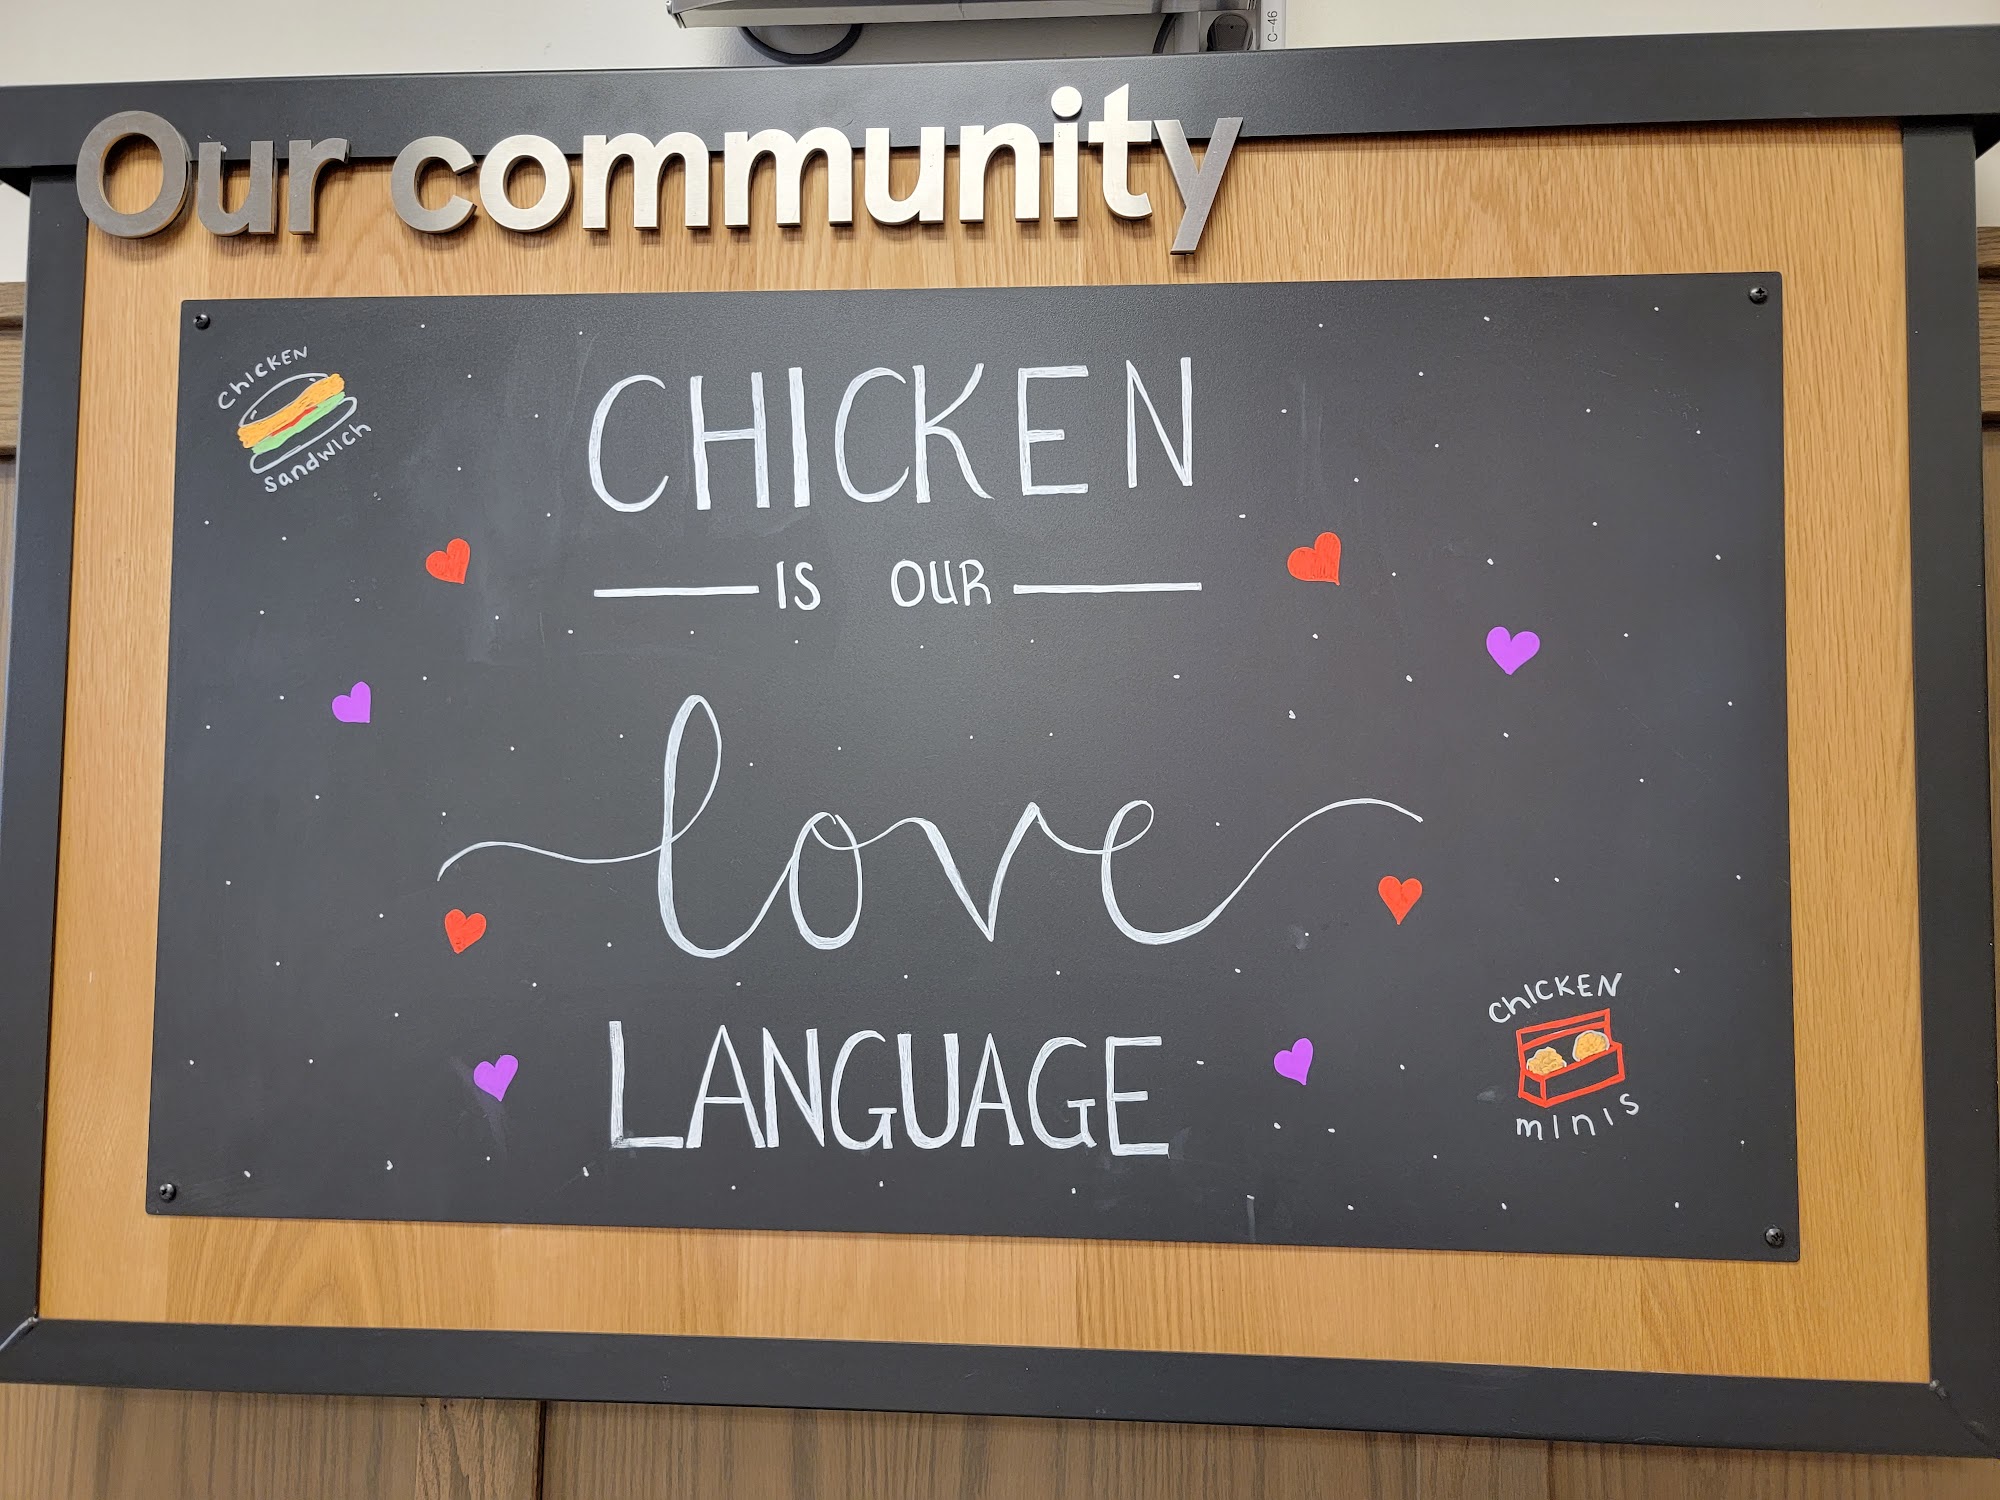 C-46
Our community
CHICKEN
sandwich
CHICKEN
IS OUR
love
LANGUAGE
CHICKEN
minis